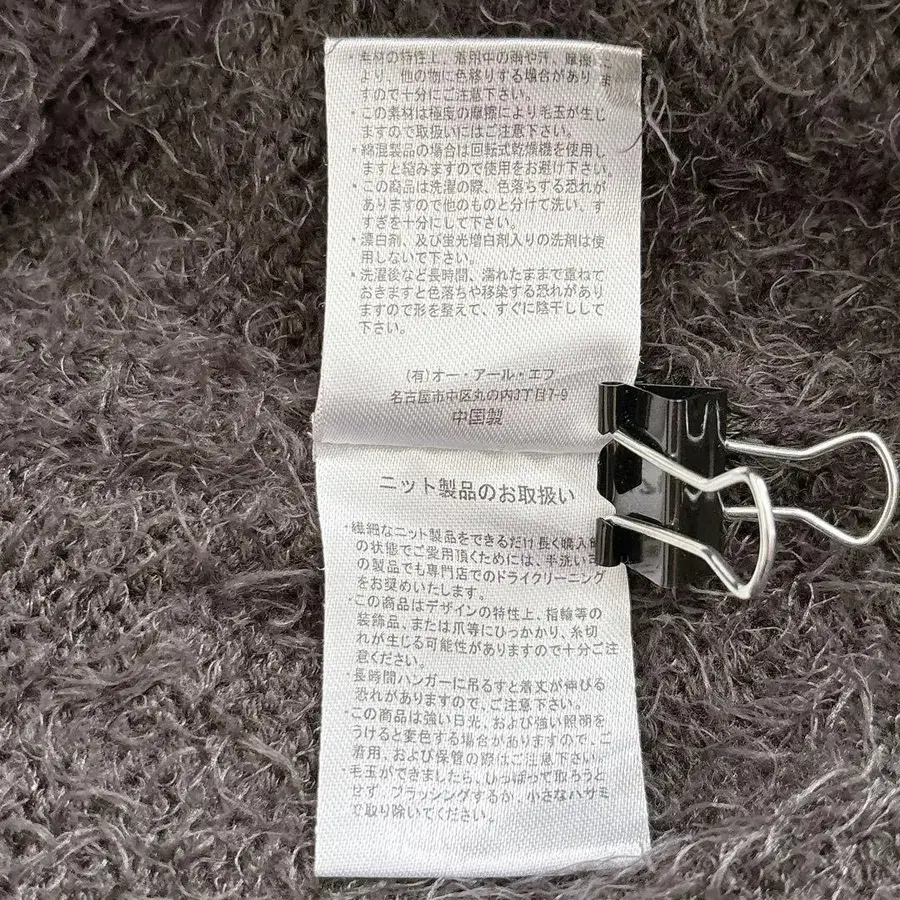 ・素材の特性上、着用中の雨や汗、摩擦に
より、他の物に色移りする場合がありま
すので十分にご注意ください。
・この素材は極度の摩擦により毛玉が生じ
ますので取扱いにはご注意下さい。
・綿混製品の場合は回転式乾燥機を使用し
ますと縮みますので使用をお避け下さい。
・この商品は洗濯の際、色落ちする恐れが
ありますので他のものと分けて洗い、す
すぎを十分にして下さい。
・漂白剤、及び蛍光増白剤入りの洗剤は使
用しないで下さい。
・洗濯後など長時間、濡れたままで重ねて
おきますと色落ちや移染する恐れがあり
ますので形を整えて、すぐに陰干しして
下さい。
(有)オー・アール・エフ
名古屋市中区丸の内3丁目7-9
中国製
ニット製品のお取扱い
・繊細なニット製品をできるだけ長く購入
の状態でご愛用頂くためには、手洗い
の製品でも専門店でのドライクリーニング
をお奨めいたします。
・この商品はデザインの特性上、指輪等の
装飾品、または爪等にひっかかり、糸切
れが生じる可能性がありますので十分ご注
意ください。
・長時間ハンガーに吊るすと着丈が伸びる
恐れがありますので、ご注意下さい。
・この商品は強い日光、および強い照明を
うけると変色する場合がありますので、ご
着用、および保管の際はご注意下さい。
・毛玉ができましたら、ひっぱって取ろうと
せず、ブラッシングするか、小さなハサミ
で取り除いてください。